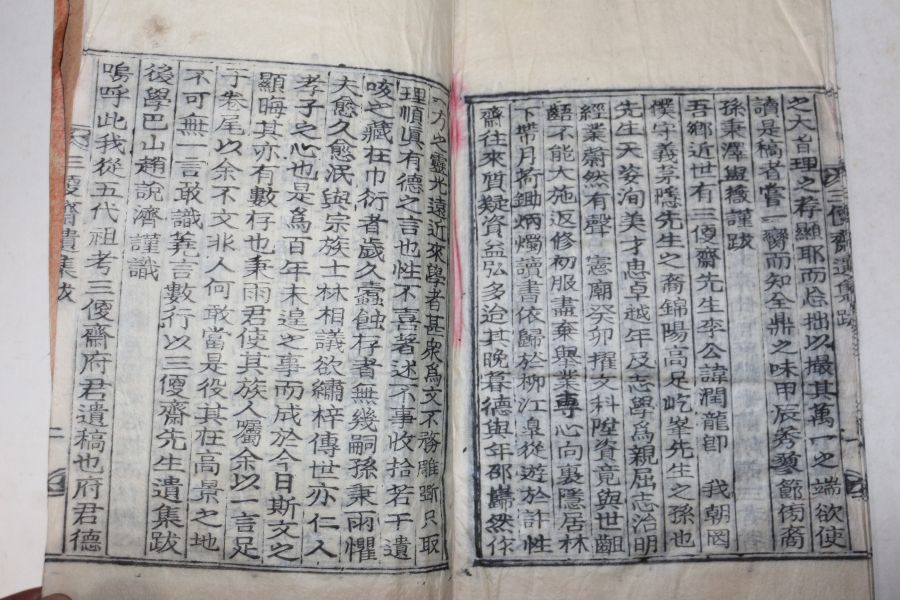 三優齋遺集跋
之大旨理之存顯耶而忘拙以撮其萬一之端欲使
讀是稿者嘗一臠而知全鼎之味甲辰秀葽節傍裔
孫秉澤與薇謹跋
吾鄉近世有三優齋先生李公諱潤龍卽我朝岡
僕字義景隱先生之裔錦陽高足屹峯先生之孫也
先生天姿洵美才思卓越年及志學爲親屈志治明
經業蔚然有聲憲廟癸卯擢文科陞資竟與世齟
齬不能大施返修初服盡棄與業專心向裏隱居林
下帶月荷鋤炳燭讀書依歸於柳江皐從遊於許性
齋往來質疑資益弘多治其晩暮德與年邵巋然作
一方之靈光遠近來學者甚衆爲文不務雕斲只取
理順眞有德之言也性不喜著述不事收拾若干遺
咳之藏在巾衍者歲久蠹蝕存者無幾嗣孫秉雨懼
大愈久愈泯與宗族士林相議欲繡梓傳世亦仁人
孝子之心也是爲百年未遑之事而成於今日斯文之
顯晦其亦有數存也秉雨君使其族人囑余以一言足
于卷尾以余不文非人何敢當是役其在高景之地
不可無一言敢識蕘言數行以三優齋先生遺集跋
後學巴山趙說濟謹識
嗚呼此我從五代祖考三優齋府君遺稿也府君德
三優齋遺集跋
二